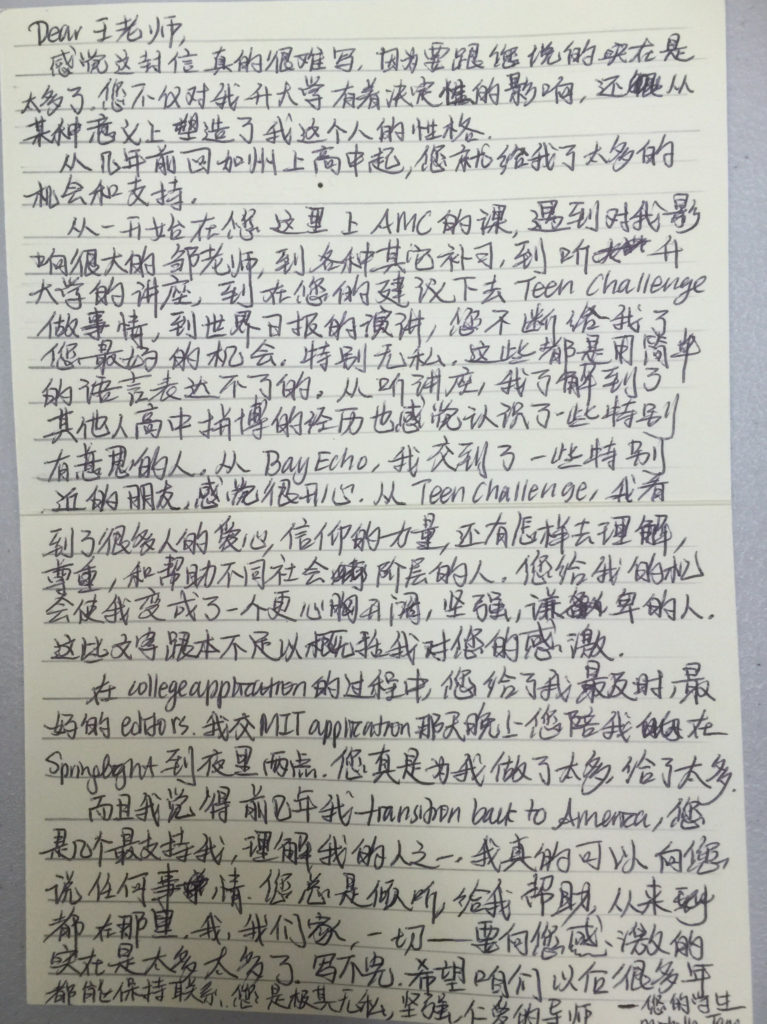 Dear 王老师,
感觉这封信真的很难写. 因为要跟您说的实在是
太多了. 您不仅对我升大学有着决定性的影响, 还从
某种意义上塑造了我这个人的性格.
从几年前回加州上高中起, 您就给我了太多的
机会和支持.
从一开始在您这里上 AMC 的课, 遇到对我影
响很大的邹老师, 到各种其它补习, 到听升
大学的讲座, 到在您的建议下去 Teen Challenge
做事情, 到世界日报的演讲, 您不断给我了
您最好的机会. 特别无私. 这些都是用简单
的语言表达不了的. 从听讲座, 我了解到了
其他人高中拼博的经历也感觉认识了一些特别
有意思的人. 从 BayEcho, 我交到了一些特别
近的朋友, 感觉很开心. 从 Teen Challenge, 我看
到了很多人的爱心, 信仰的力量, 还有怎样去理解,
尊重, 和帮助不同社会阶层的人. 您给我的机
会使我变成了一个更心胸开阔, 坚强, 谦卑的人.
这些文字跟本不足以概括我对您的感激.
在 college application 的过程中, 您给了我最及时, 最
好的 editors. 我交 MIT application 那天晚上您陪我在
Springlight 到夜里两点. 您真是为我做了太多, 给了太多.
而且我觉得前几年我 transition back to America, 您
是几个最支持我, 理解我的人之一. 我真的可以向您
说任何事情. 您总是倾听, 给我帮助, 从来到
都在那里. 我, 我们家, 一切——要向您感激的
实在是太多太多了. 写不完. 希望咱们以后很多年
都能保持联系. 您是极其无私, 坚强, 仁爱的导师 —您的学生